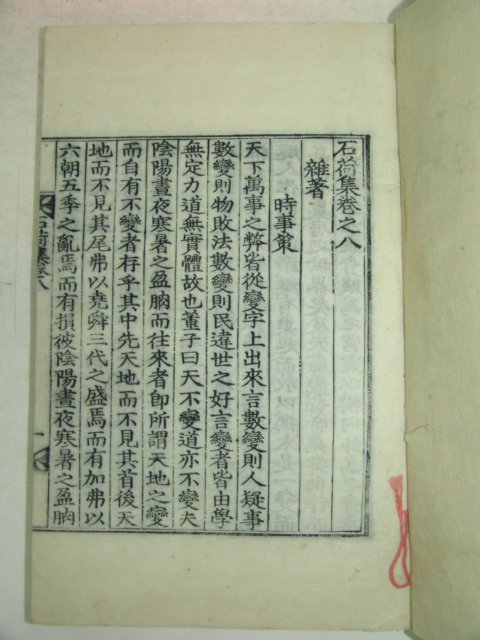 石荷集卷之八
雜著
時事策
天下萬事之弊皆從變字上出來言數變則人疑事
數變則物敗法數變則民違世之好言變者皆由學
無定力道無實體故也董子曰天不變道亦不變夫
陰陽晝夜寒暑之盈朒而往來者即所謂天地之變
而自有不變者存乎其中先天地而不見其首後天
地而不見其尾弗以堯舜三代之盛焉而有加弗以
六朝五季之亂焉而有損彼陰陽晝夜寒暑之盈朒
石荷集卷八
一